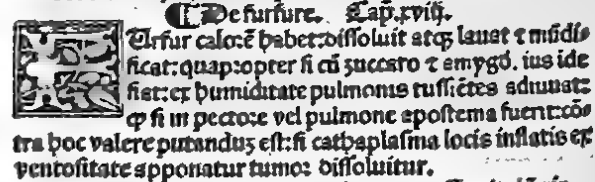 ¶ De furfure. Cap. xviij.
FUrfur calorē habet: dissoluit atqꝫ lauat ⁊ mūdi
ficat: quapropter si cū zuccaro ⁊ amygd. ius ide
fiat: ex humiditate pulmonis tussiētes adiuuat:
ꝙ si in pectore vel pulmone apostema fuerit: cō
tra hoc valere putanduꝫ est: si cathaplasma locis inflatis ex
ventositate apponatur tumor dissoluitur.